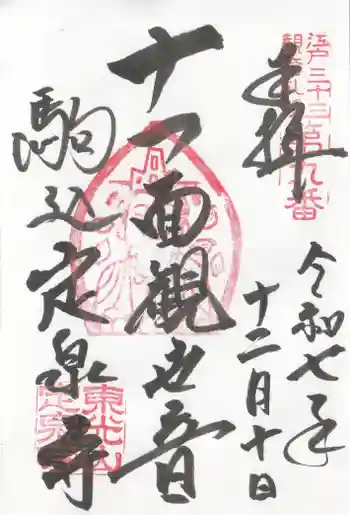 奉拝
江戸三十三
観音札所
第九番
令和七年
十二月十日
十一面観世音
駒込定泉寺
東光山
定泉寺